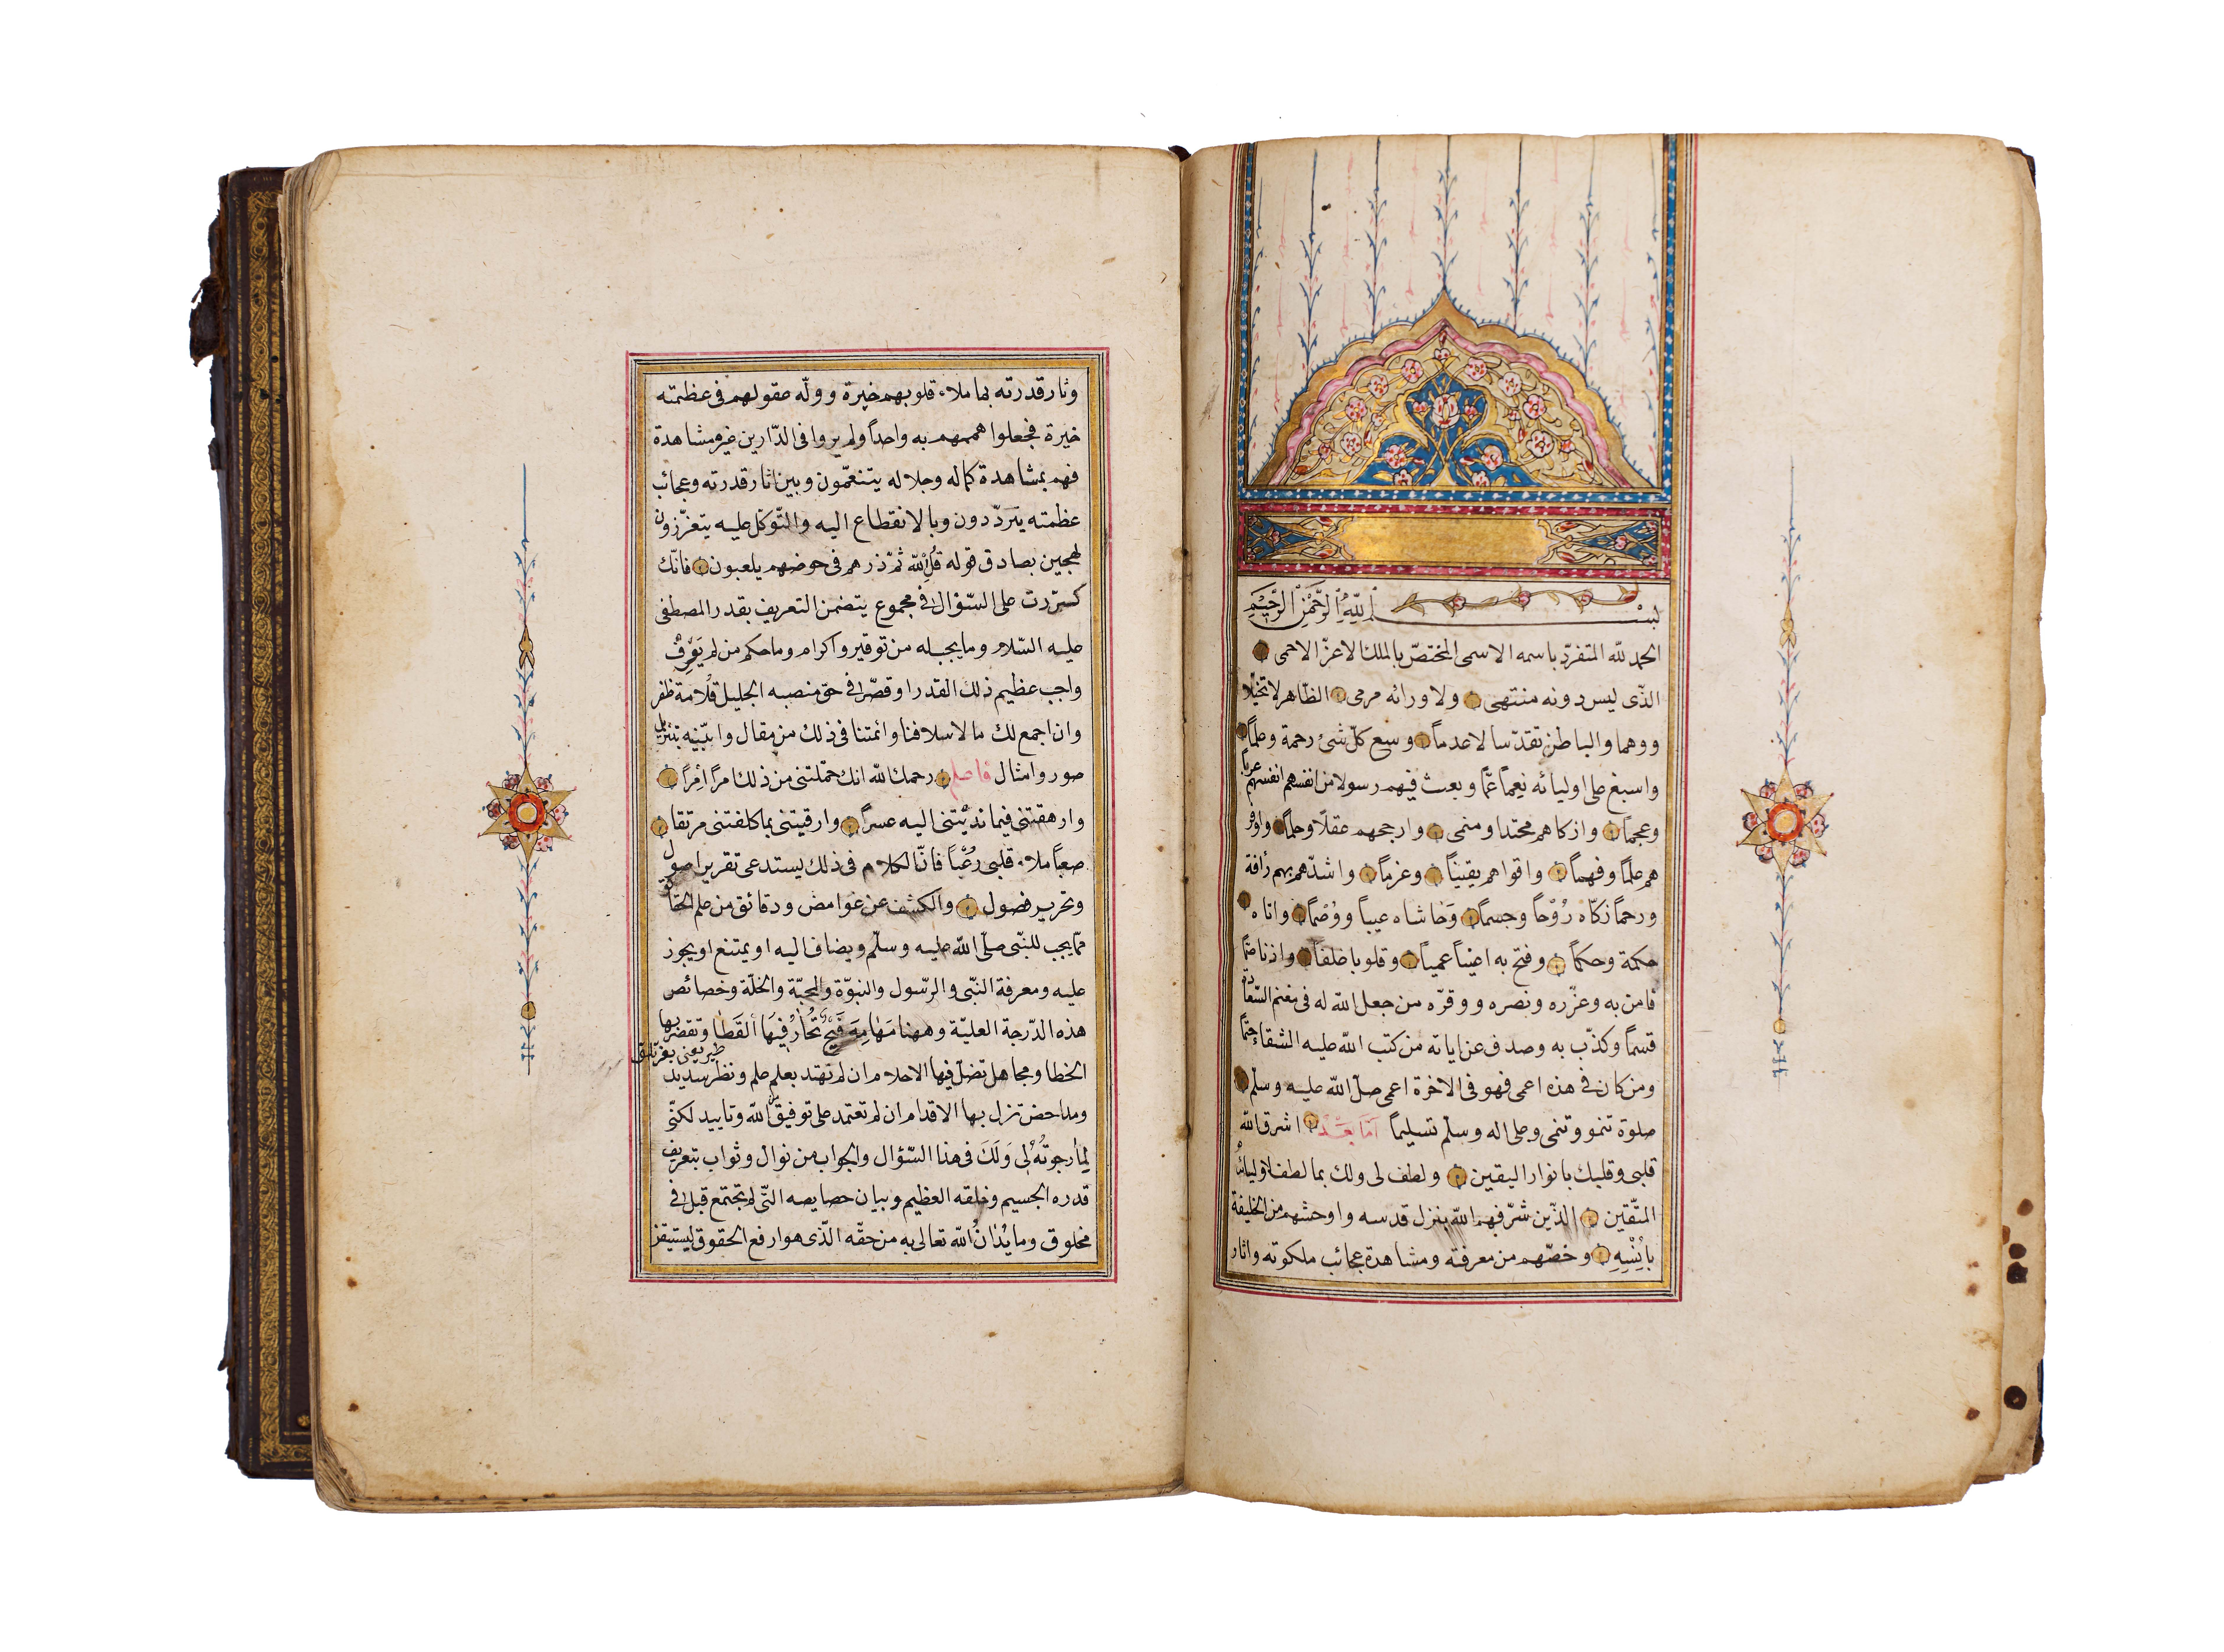 بسم الله الرحمن الرحيم
الحمد لله المتفرّد باسمه الاسمى المختصّ بالملك الاعزّ الاحمى
الذّى ليس دونه منتهى ولا ورائه مرمى الظّاهر لا تخيّلا
ووهما والباطن تقدّسا لا عدماً وسع كلّ شئ رحمة وعلماً
واسبغ على اوليائه نعماً عمّا وبعث فيهم رسولا من انفسهم انفسهم عرباً
وعجماً وازكاهم محتدا ومنمى وارجحهم عقلاً وحلماً واوفر
هم علماً وفهماً واقواهم يقيناً وعزماً واشدّهم بهم رأفة
ورحماً زكّاه رُوْحاً وجسماً وَحاشاه عيباً ووُصْماً واتاه
حكمة وحكماً وفتح به اعيناً عمياً وقلوبا غلفاً واذنا صمّا
فامن به وعزّره ونصره ووقرّه من جعل الله له فى مغنم السّعادة
قسماً وكذّب به وصدف عن اياته من كتب الله عليه الشقاء حتماً
ومن كان فى هذه اعمى فهو فى الاخرة اعمى صلّ الله عليه وسلّم
صلوة تنمو وتنمى وعلى اله وسلّم تسليماً امّا بَعْد اشرق الله
قلبى وقلبك بانوار اليقين ولطف لى ولك بما لطف لاوليائه
المتّقين الذّين شرّفهم الله بنزل قدسه واوحشهم من الخليقة
باُنْسِهِ وخصّهم من معرفته ومشاهدة عجائب ملكوته واثار
وثار قدرته بما ملاء قلوبهم خيرة وولّه عقولهم فى عظمته
خيرة فجعلوا هممهم به واحداً ولم يروا فى الدّارين غير مشاهدة
فهم بمشاهدة كماله وجلاله يتنعّمون وبين اثار قدرته وعجائب
عظمته يتردّدون وبالانقطاع اليه والتّوكّل عليه يتعزّزون
لهجين بصادق قوله قُلِ الله ثمّ ذرهم فى خوضهم يلعبون فانّك
كرّرت على السّؤال فى مجموع يتضمن التعريف بقدر المصطفى
عليه السّلام وما يجب له من توقير واكرام وما حكم من لم يَوَفِّ
واجب عظيم ذلك القدر او قصّر فى حق منصبه الجليل قُلامة ظفر
وان اجمع لك ما لاسلافنا وائمتنا فى ذلك من مقال وابيّنه بتنزيل
صور وامثال فاعلم رحمك الله انك حمّلتنى من ذلك امراً اِمراً
وارهقتنى فيما ندبْتنى اليه عسراً وارقيتنى بما كلفتنى مرتقا
صعباً ملاء قلبى رُعْباً فانّ الكلام فى ذلك يستدعى تقرير اصول
وتحرير فصول والكشف عن غوامض ودقائق من علم الحقائق
ممّا يجب للنبّى صلّى الله عليه وسلّم ويضاف اليه او يمتنع او يجوز
عليه ومعرفة النّبى والرّسول والنبوّة والمحبّة والخلّة وخصائص
هذه الدّرجة العليّة وههنا مَهامِهَ فَيحْ تُحَارُ فِيْهَا اَلْقَطَا وتقصر بها
الخطا ومجاهل تضلّ فيها الاحلام ان لم تهتد بعلم علم ونظر سديد
ومداحض تزل بها الاقدام ان لم تعتمد على توفيق من الله وتاييد لكنّى
لِمَا رجوتُهُ لِى وَلَكَ فى هذا السّؤال والجواب من نوال وثواب بتعريف
قدره الجسيم وخلقه العظيم وبيان خصايصه التّى لم تجتمع قبل فى
مخلوق وما يُدَانُ الله تعالى به من حقّه الّذى هو ارفع الحقوق ليستيقن